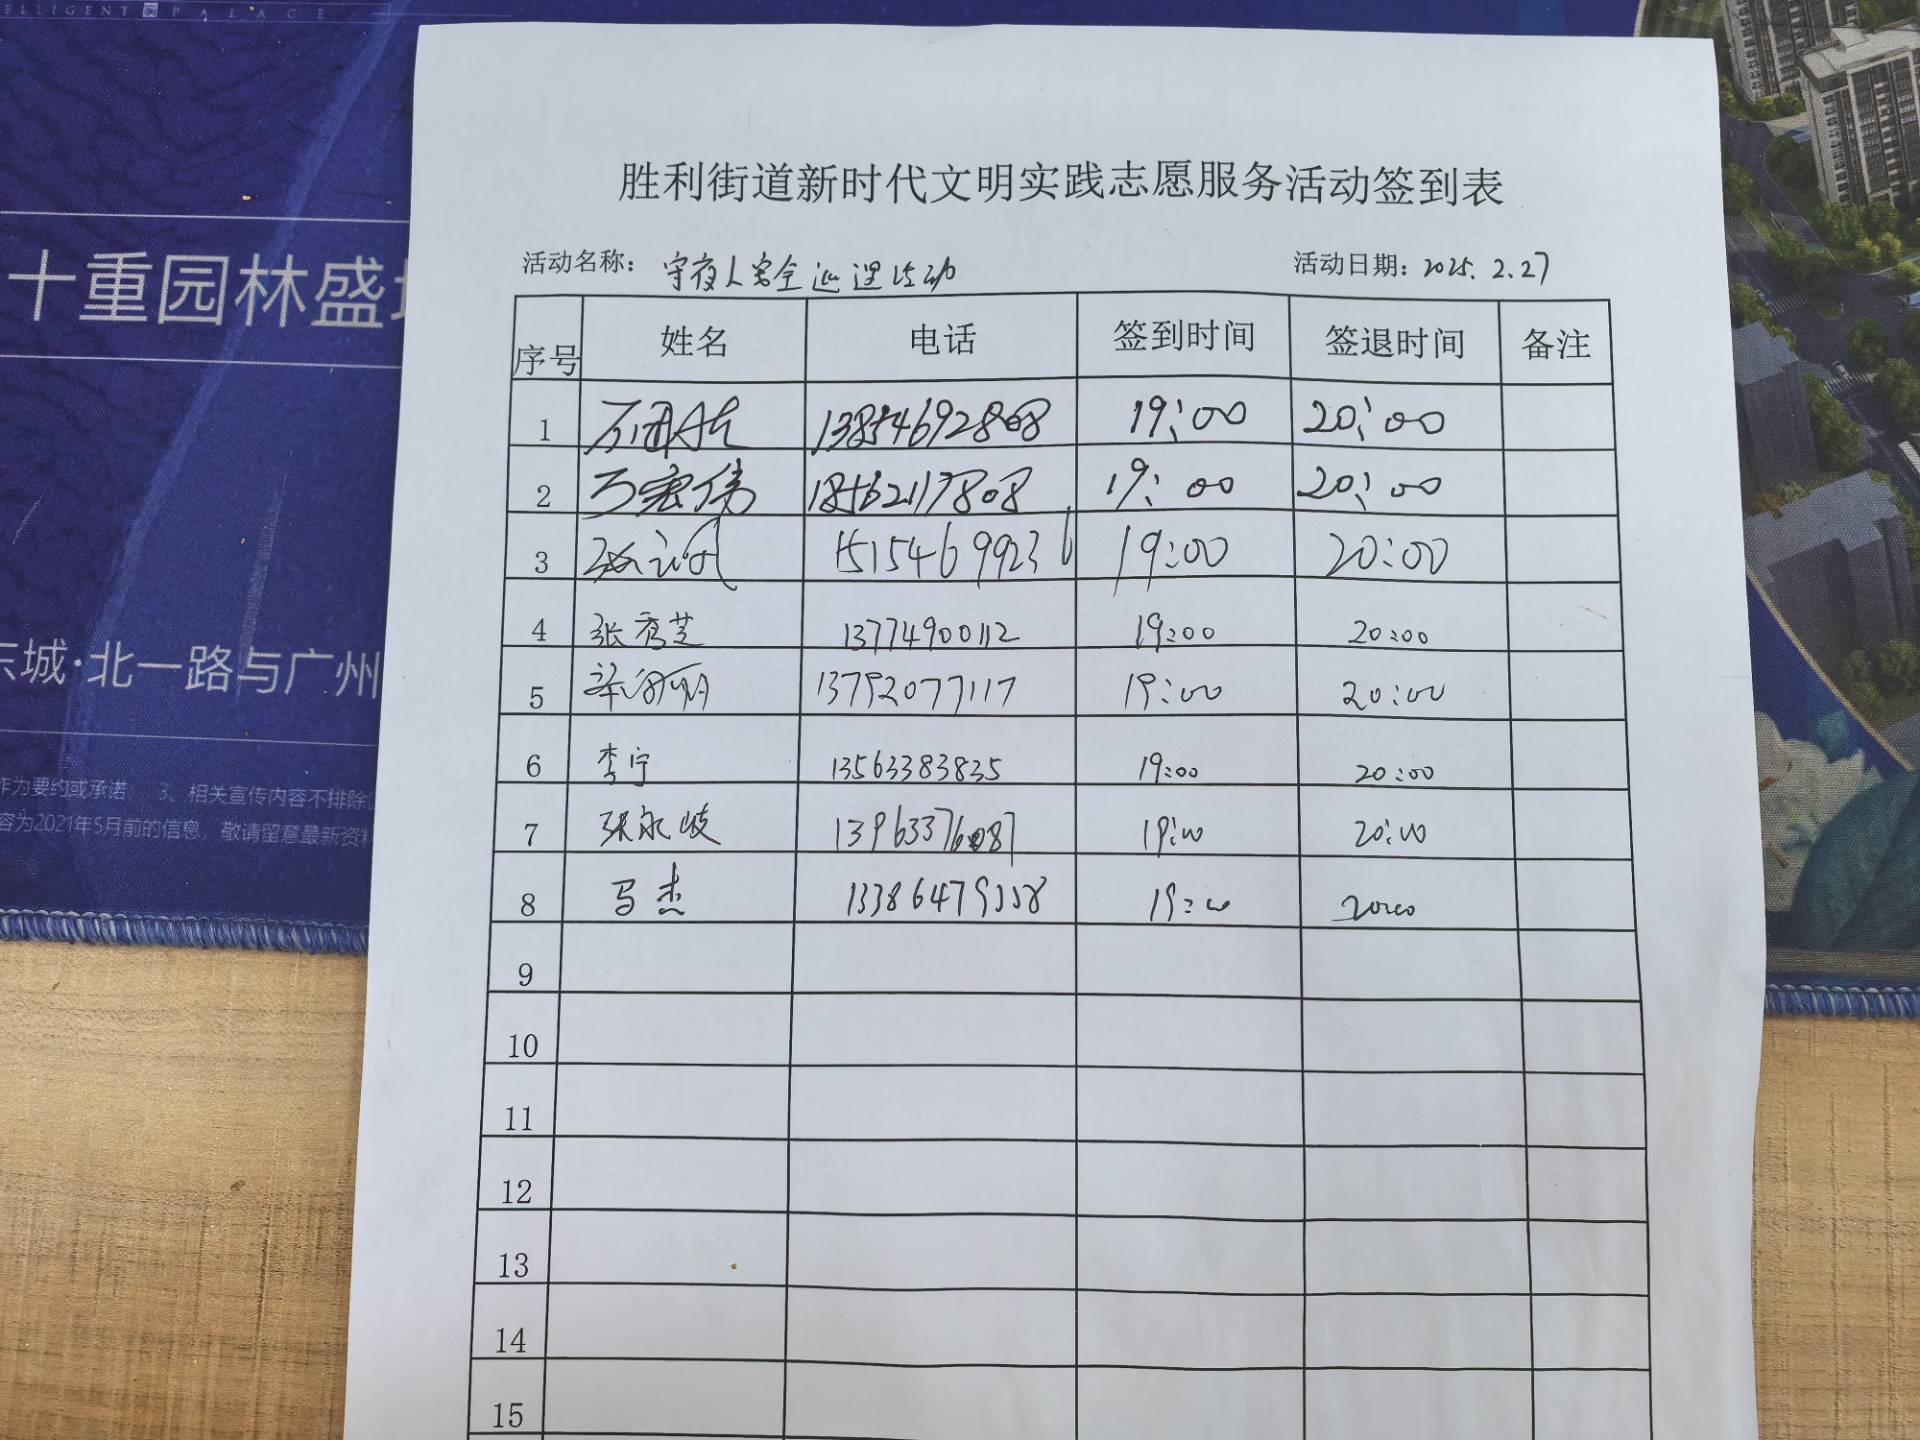 ELLIGENT PALACE
十重园林盛
东城·北一路与广州
作为要约或承诺； 3、相关宣传内容不排除
容为2021年5月前的信息，敬请留意最新资料
胜利街道新时代文明实践志愿服务活动签到表
活动名称： 守夜人安全巡逻活动 活动日期：2025.2.27
序号 姓名 电话 签到时间 签退时间 备注
1 13854692808 19:00 20:00
2 万宏伟 18562117808 19:00 20:00
3 15154699236 19:00 20:00
4 张秀芝 13774900112 19:00 20:00
5 13792077117 19:00 20:00
6 李宁 13563383835 19:00 20:00
7 张永岐 13963376087 19:00 20:00
8 马杰 19:00 20:00
9
10
11
12
13
14
15